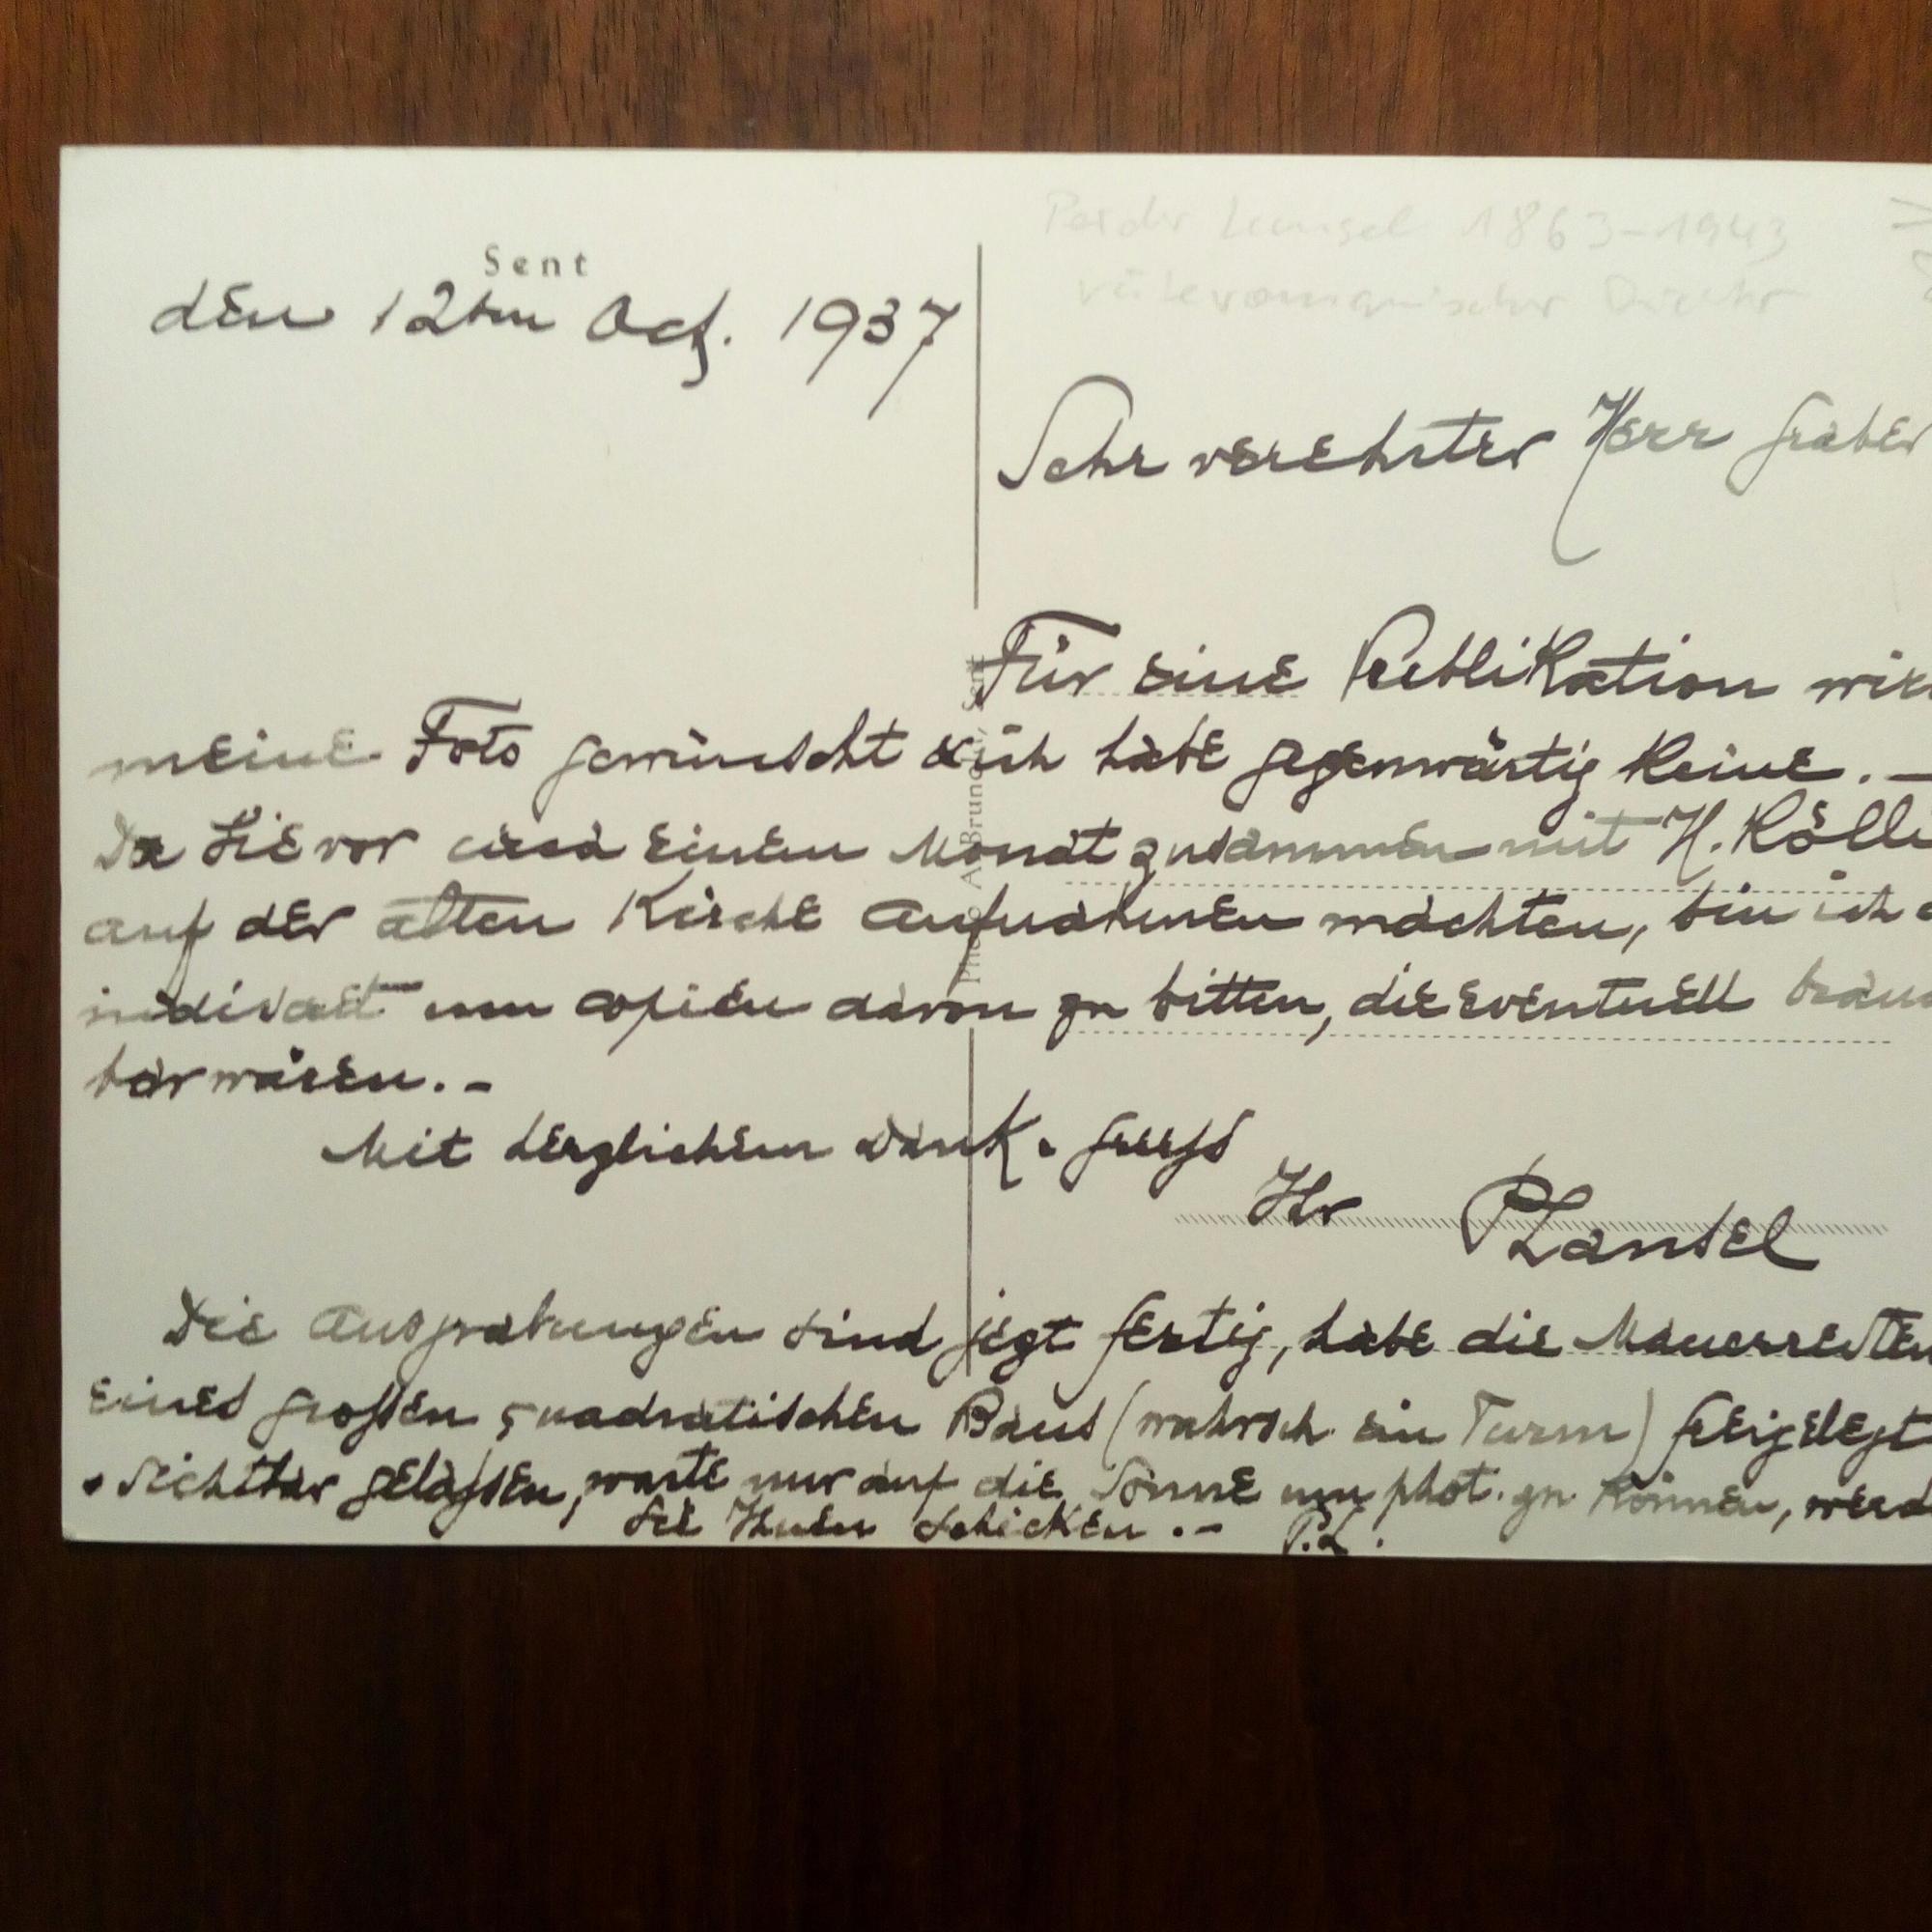 Peider Lansel 1863-1943
rätoromanischer Dichter
Sent
den 12ten Oct. 1937
Sehr verehrter Herr Graber
Für eine Publikation wird
meine Foto gewünscht & ich habe gegenwärtig keine. —
Da Sie vor circa einem Monat zusammen mit H. Kölle
auf der alten Kirche Aufnahmen machten, bin ich
um copien davon zu bitten, die eventuell brauch
bar wären. -
Mit herzlichem Dank & Gruss
Ihr PLansel
Die Ausgrabungen sind jezt fertig, habe die Mauerresten
eines grossen quadratischen Baus (wahrsch. ein Turm) freigelegt
& sichtbar gelassen, warte nur auf die Sonne um phot. zu können, werd
sie Ihnen schicken. - P.L.